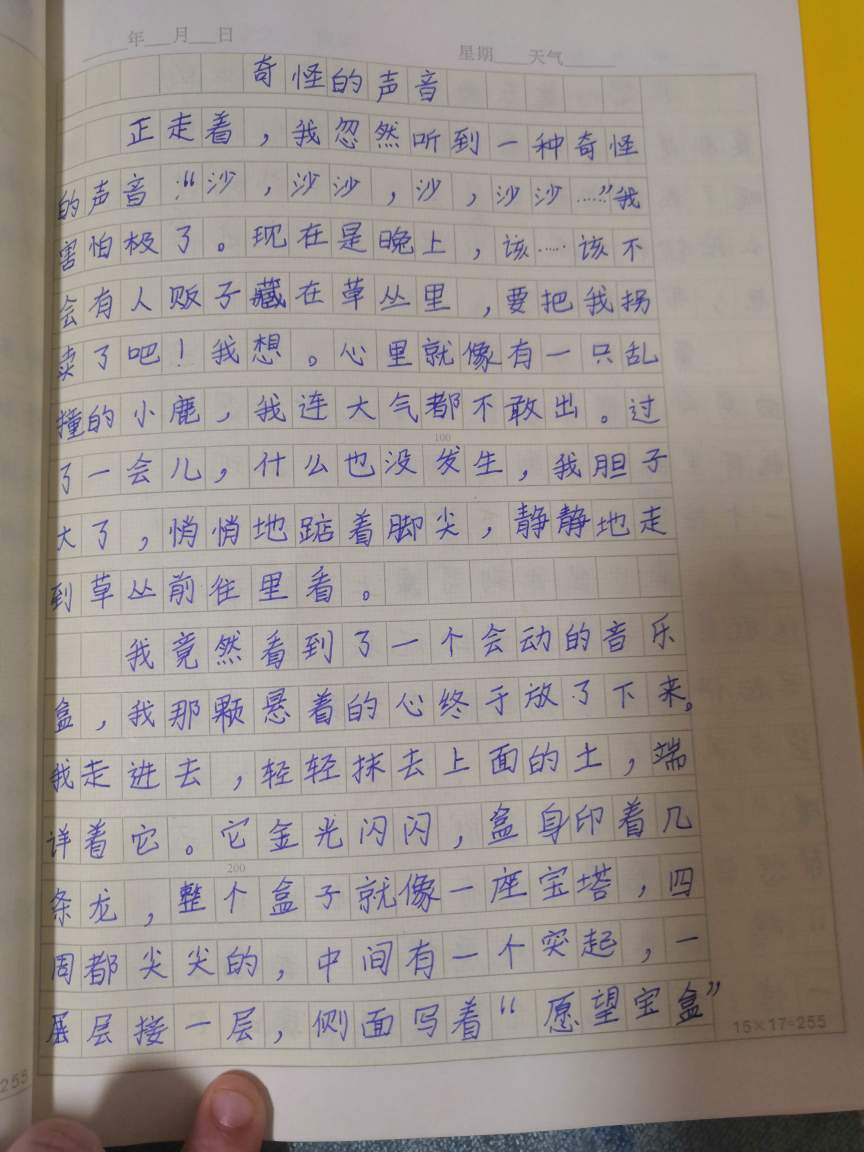 年 月 日 星期 天气
奇怪的声音
正走着，我忽然听到一种奇怪
的声音：“沙，沙沙，沙，沙沙……”我
害怕极了。现在是晚上，该……该不
会有人贩子藏在草丛里，要把我拐
卖了吧！我想。心里就像有一只乱
撞的小鹿，我连大气都不敢出。过
100
了一会儿，什么也没发生，我胆子
大了，悄悄地踮着脚尖，静静地走
到草丛前往里看。
我竟然看到了一个会动的音乐
盒，我那颗悬着的心终于放了下来。
我走进去，轻轻抹去上面的土，端
详着它。它金光闪闪，盒身印着几
200
条龙，整个盒子就像一座宝塔，四
周都尖尖的，中间有一个突起，一
层层接一层，侧面写着“愿望宝盒”
15×17=255
255